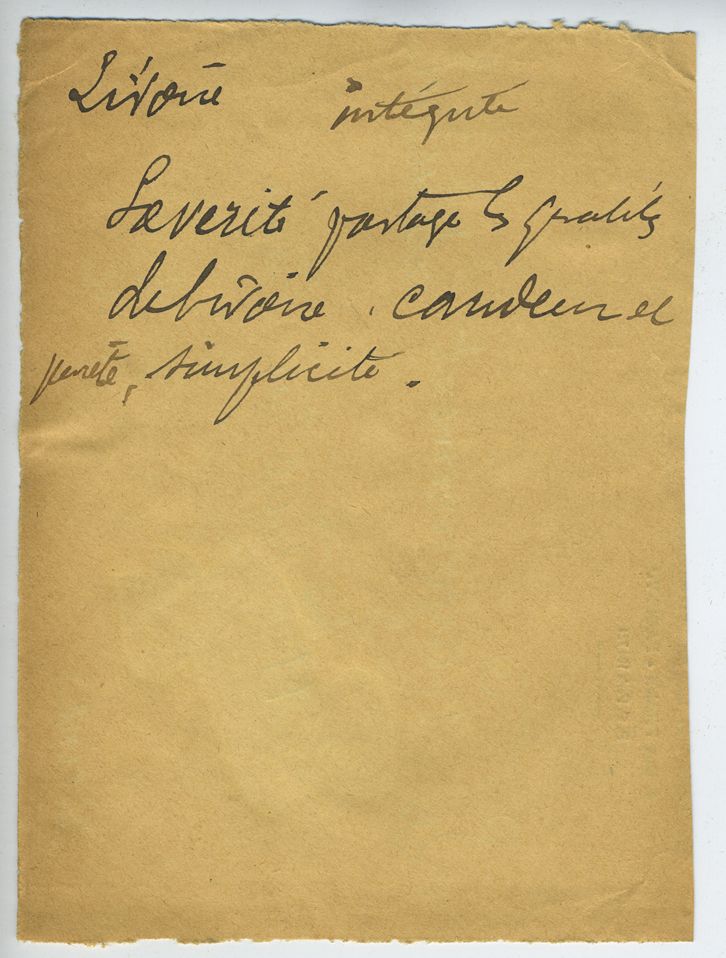 L'ivoire intégrité
La verité partage les qualités
de l'ivoire, candeur et
pureté, simplicité.